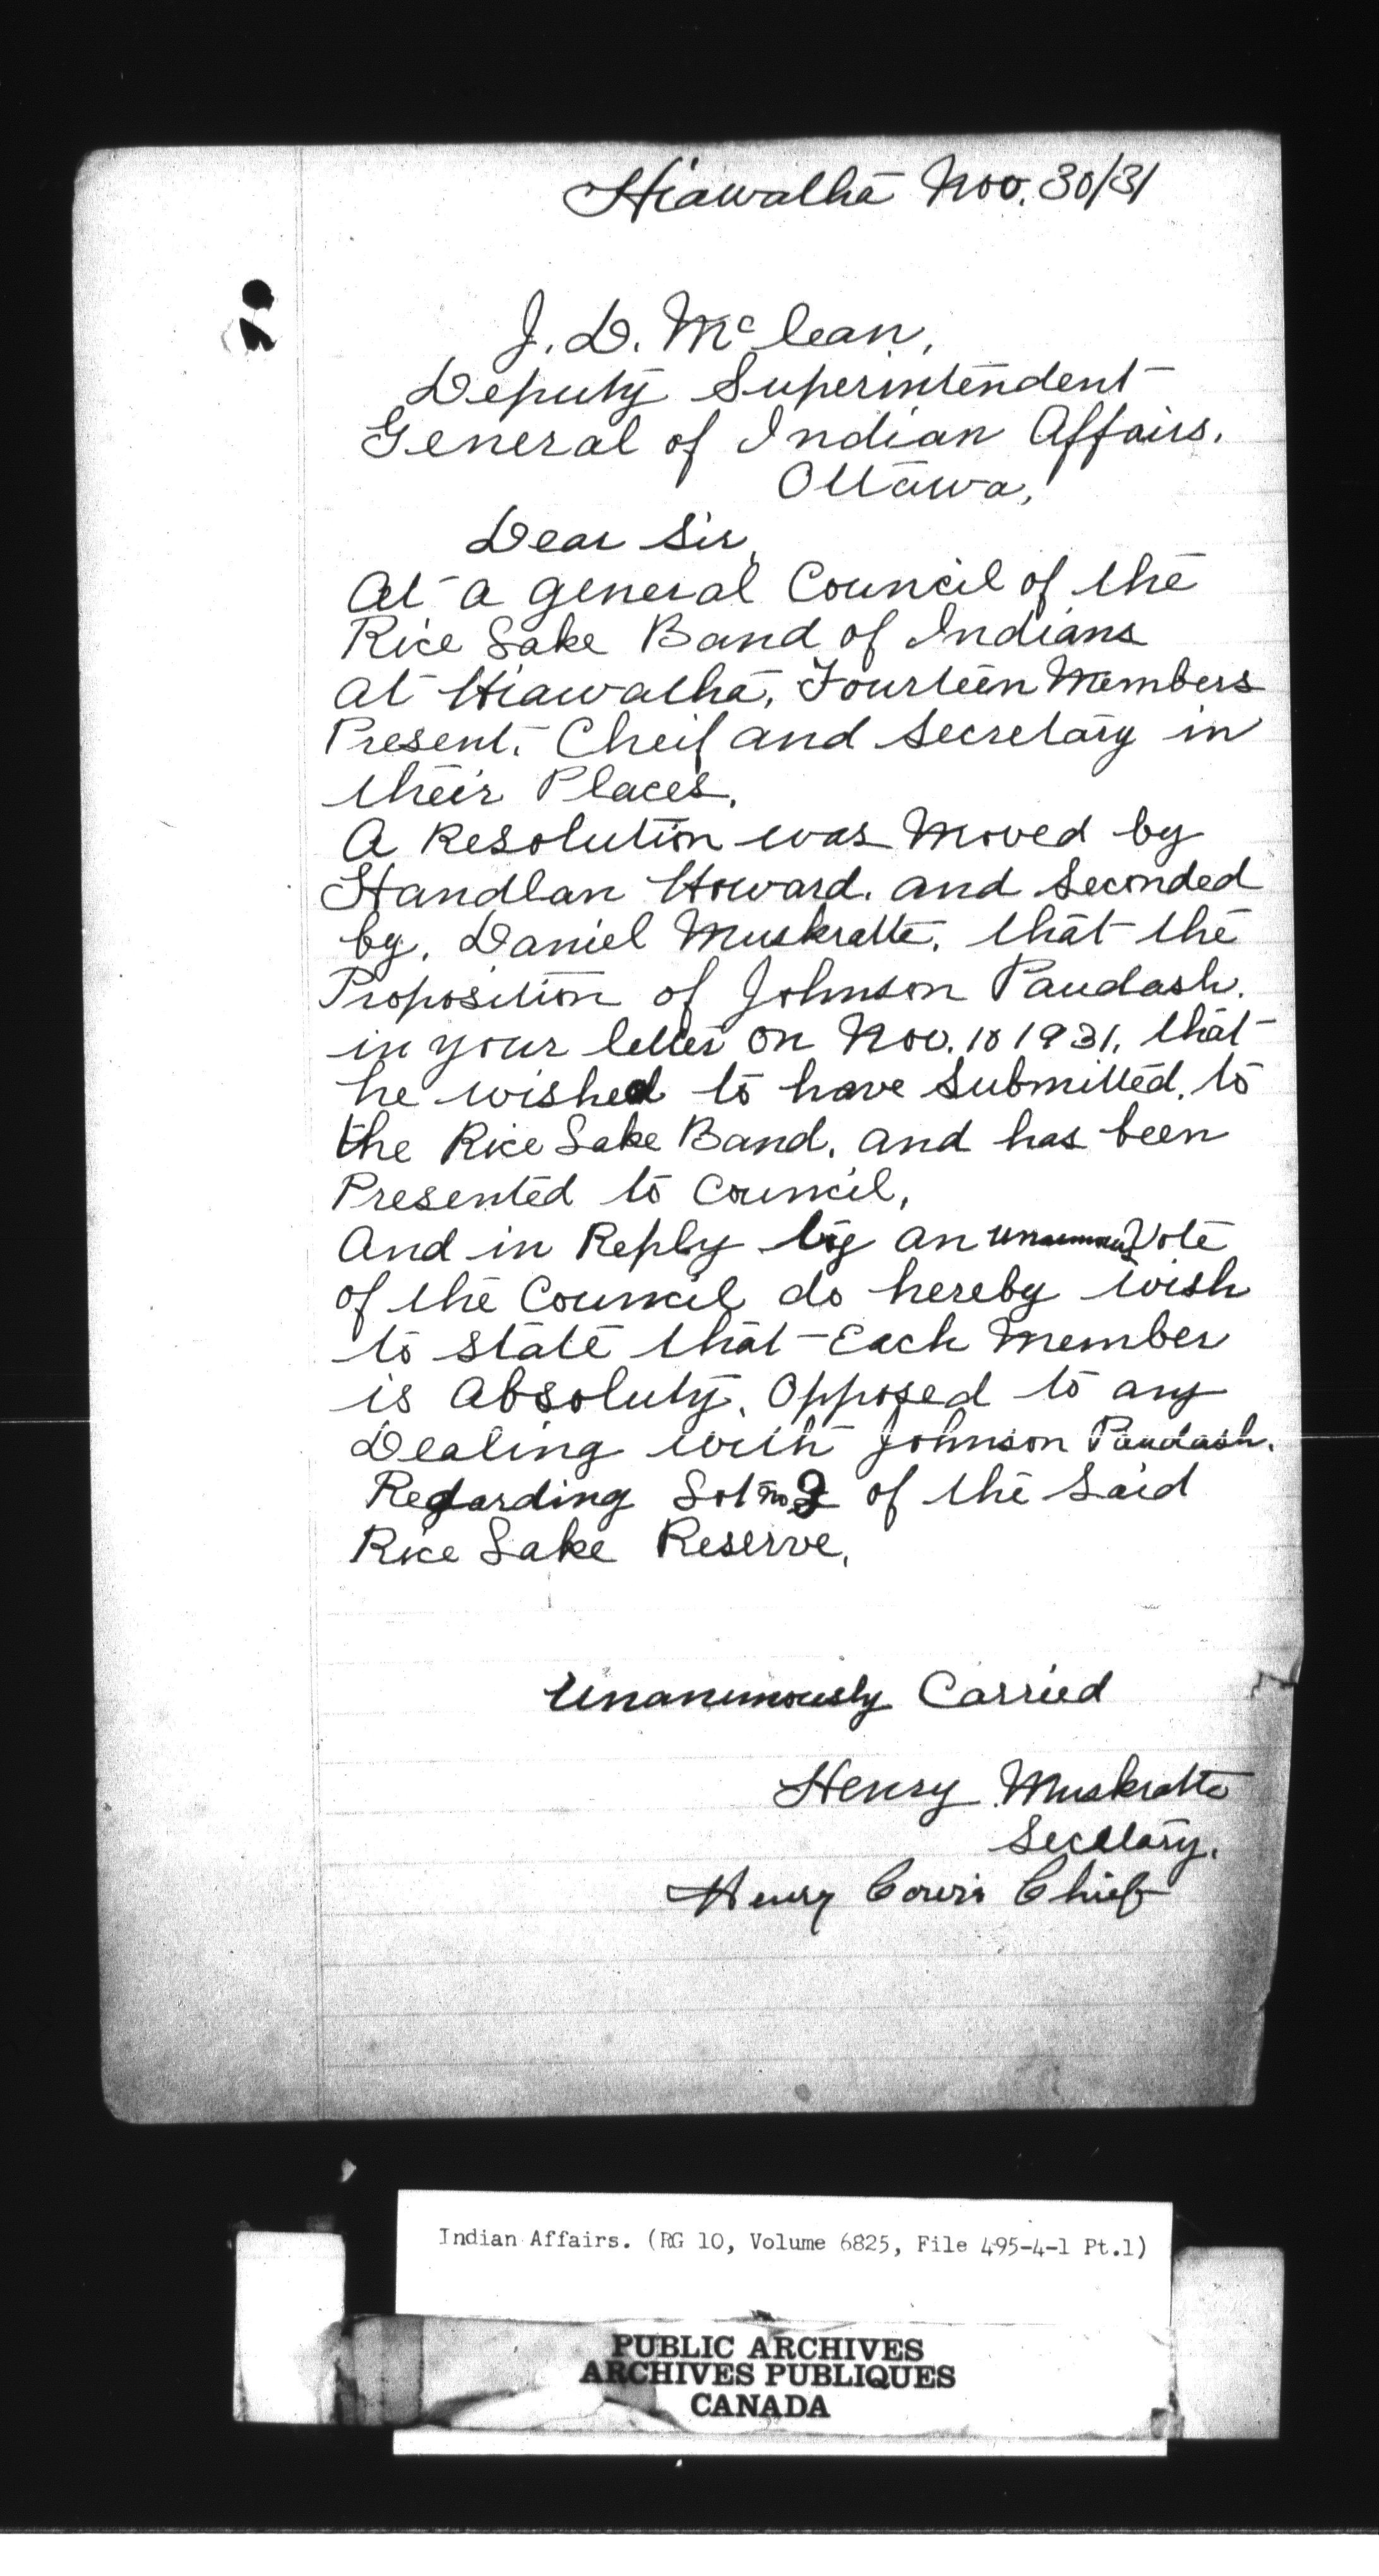 Hiawatha Nov. 30/31
J. D. McLean,
Deputy Superintendent
General of Indian Affairs.
Ottawa,
Dear Sir,
At a general Council of the
Rice Lake Band of Indians
at Hiawatha, Fourteen Members
Present. Cheif and Secretary in
their Places.
A Resolution was Moved by
Handlan Howard. and Seconded
by. Daniel Muskratte. that the
Proposition of Johnson Paudash.
in your letter on Nov. 18 1931. that
he wished to have Submitted. to
the Rice Lake Band. and has been
Presented to Council,
And in Reply by an unanimous Vote
of the Council do hereby wish
to state that Each Member
is absoluty. Opposed to any
Dealing with Johnson Paudash.
Regarding Lot no of the Said
Rice Lake Reserve.
Unanimously Carried
Henry Muskratte
Secretary.
Henry Cowie Chief
Indian Affairs. (RG 10, Volume 6825, File 495-4-1 Pt.1)
PUBLIC ARCHIVES
ARCHIVES PUBLIQUES
CANADA